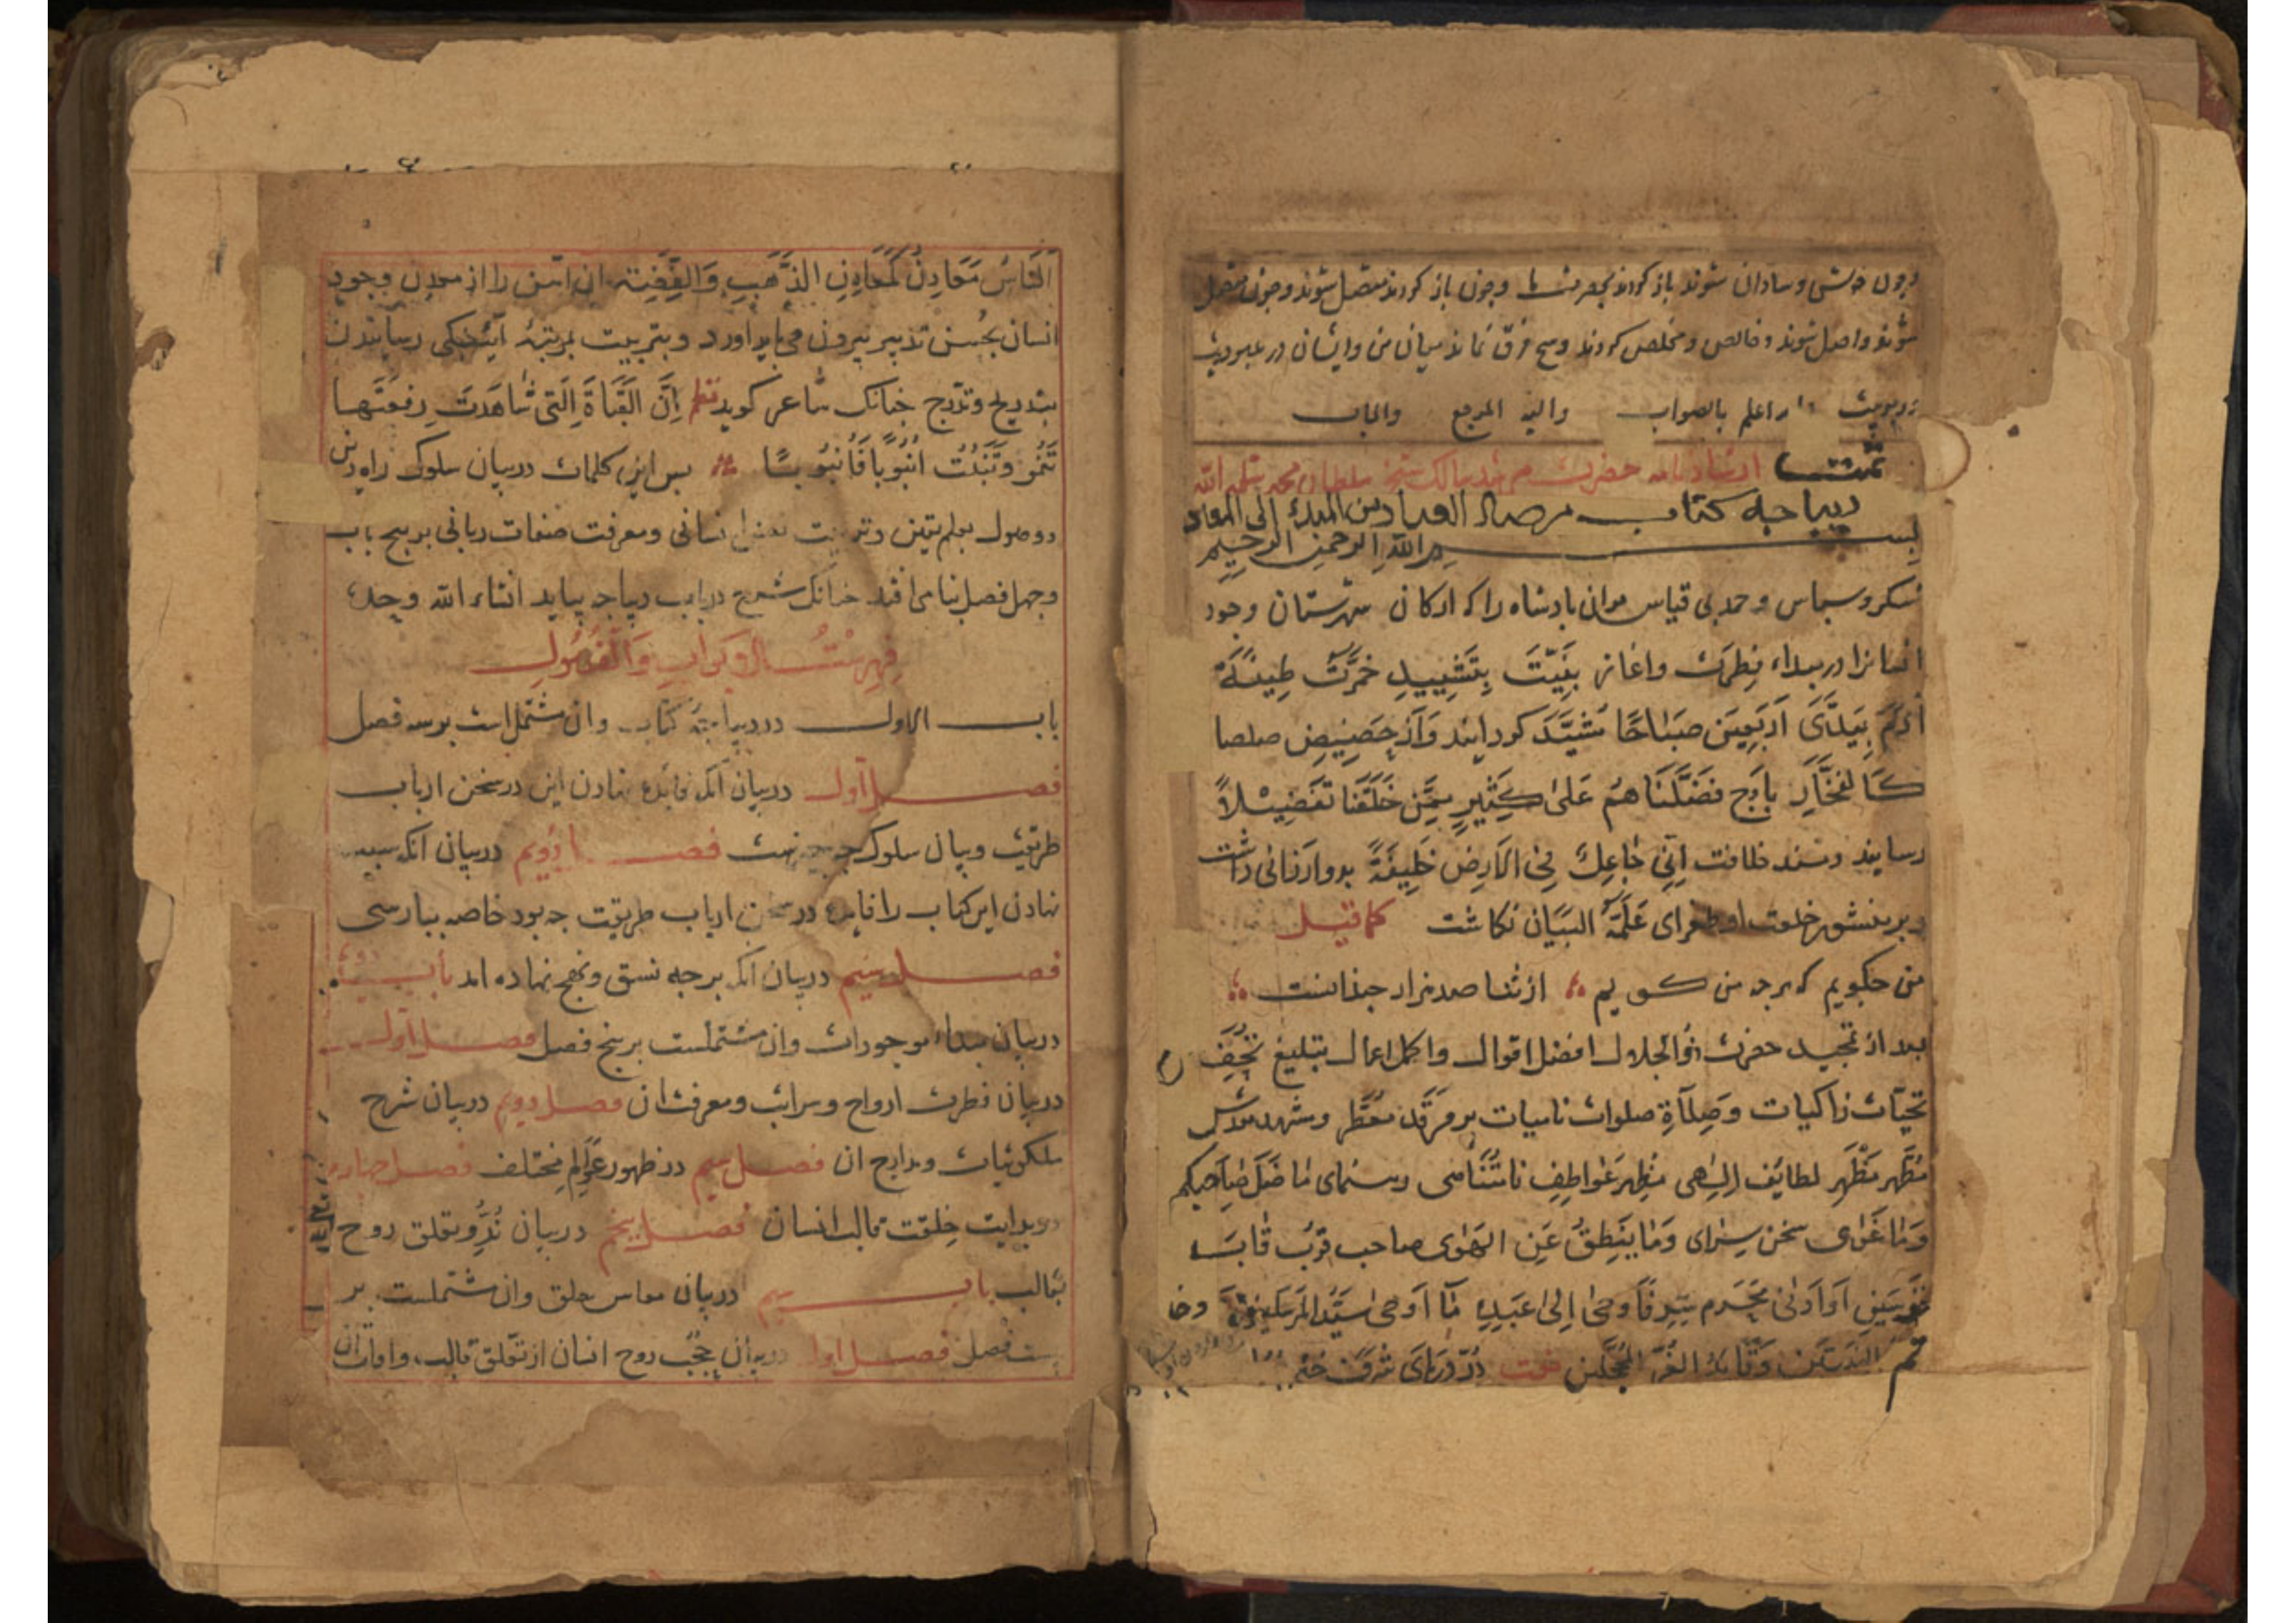 و چون خاشی و سادان شوند باز کردند بحضرت ما و چون باز کردند متصل شوند و چون متصل
شوند واصل شوند و خالص و مخلص کردند و هیچ فرق نماند میان من و ایشان در عبودیت
ربوبیت اعلم بالصواب والیه المرجع والماب
تمت ارشاد نامه حضرت مرشد سالک شیخ سلطان محمد
دیباجه کتاب مرصاد العباد من المبدا الی المعاد
بسم الله الرحمن الرحیم
شکر و سپاس و حمد بی قیاس مران بادشاه را که ارکان شهرستان وجود
انسانرا در مبداء فطرت و اغاز بنیت بتشیید خمرت طینة
آدم بیدی اربعین صباحا مشید کردانید و از حضیض صلصا
کالفخار باوج فضلناهم علی کثیر ممن خلقنا تفضیلاً
رسانید و مسند خلافت انی جاعل فی الارض خلیفة بدو ارزانی داشت
و بر منشور خلعت او طغرای علمه البیان نکاشت کما قیل
من چکویم که هرچه من کویم از ثنا صد هزار چندانست
بعد از تمجید حضرت ذوالجلال افضل اقوال و اکمل اعمال تبلیغ تحف
تحیات زاکیات و صلاة صلوات نامیات بر مرقد معطر و مشهد
مطهر مظهر لطایف الهی مظهر عواطف نامتناهی رسنمای ما ضل صاحبکم
وما غوی سخن سرای وما ینطق عن الهوی صاحب قرب قاب
قوسین او ادنی محرم سر فاوحی الی عبده ما اوحی سید المرسلین و خا
تم النبیین و قاید الغر المحجلین در دریای شرف
الناس معادن کمعادن الذهب والفضة ان اهن را از معدن وجود
انسان بحسن تدبیر بیرون می باید اورد و بتربیت بمرتبهٔ آینکی رسانیدن
بتدریج و تدرج چنانک شاعر کوید نظم ان القناة التی شاهدت رفعتها
تنمو و تنبت انبوبا فانبوبا بس این کلمات در بیان سلوک راه دین
و وصول بعلم یقین و تربیت نفس انسانی و معرفت صفات ربانی بر پنج باب
و چهل فصل بنا می افتد چنانک شرح در دیباجه بیاید انشاء الله وحده
فهرست الابواب والفصول
باب الاول در دیباجهٔ کتاب وان مشتمل است بر سه فصل
فصل اول در بیان آنک فایده نهادن این در سخن ارباب
طریقت و بیان سلوک چیست فصل دویم در بیان انک سبب
نهادن این کتاب را فایده در سخن ارباب طریقت چه بود خاصه ببارسی
فصل سیم در بیان انک بر چه نسق و نهج نهاده اند باب دویم
در بیان مبداء موجودات وان مشتملست بر پنج فصل فصل اول
در بیان فطرت ارواح و مراتب و معرفت ان فصل دویم در بیان شرح
ملکوتیات و مدارج ان فصل سیم در ظهور عوالم مختلف فصل چهارم
در بدایت خلقت قالب انسان فصل پنجم در بیان بدو تعلق روح
بقالب باب سیم در بیان معاش خلق وان مشتملست بر
بیست فصل فصل اول در بیان حجب روح انسان از تعلق قالب و افات ان